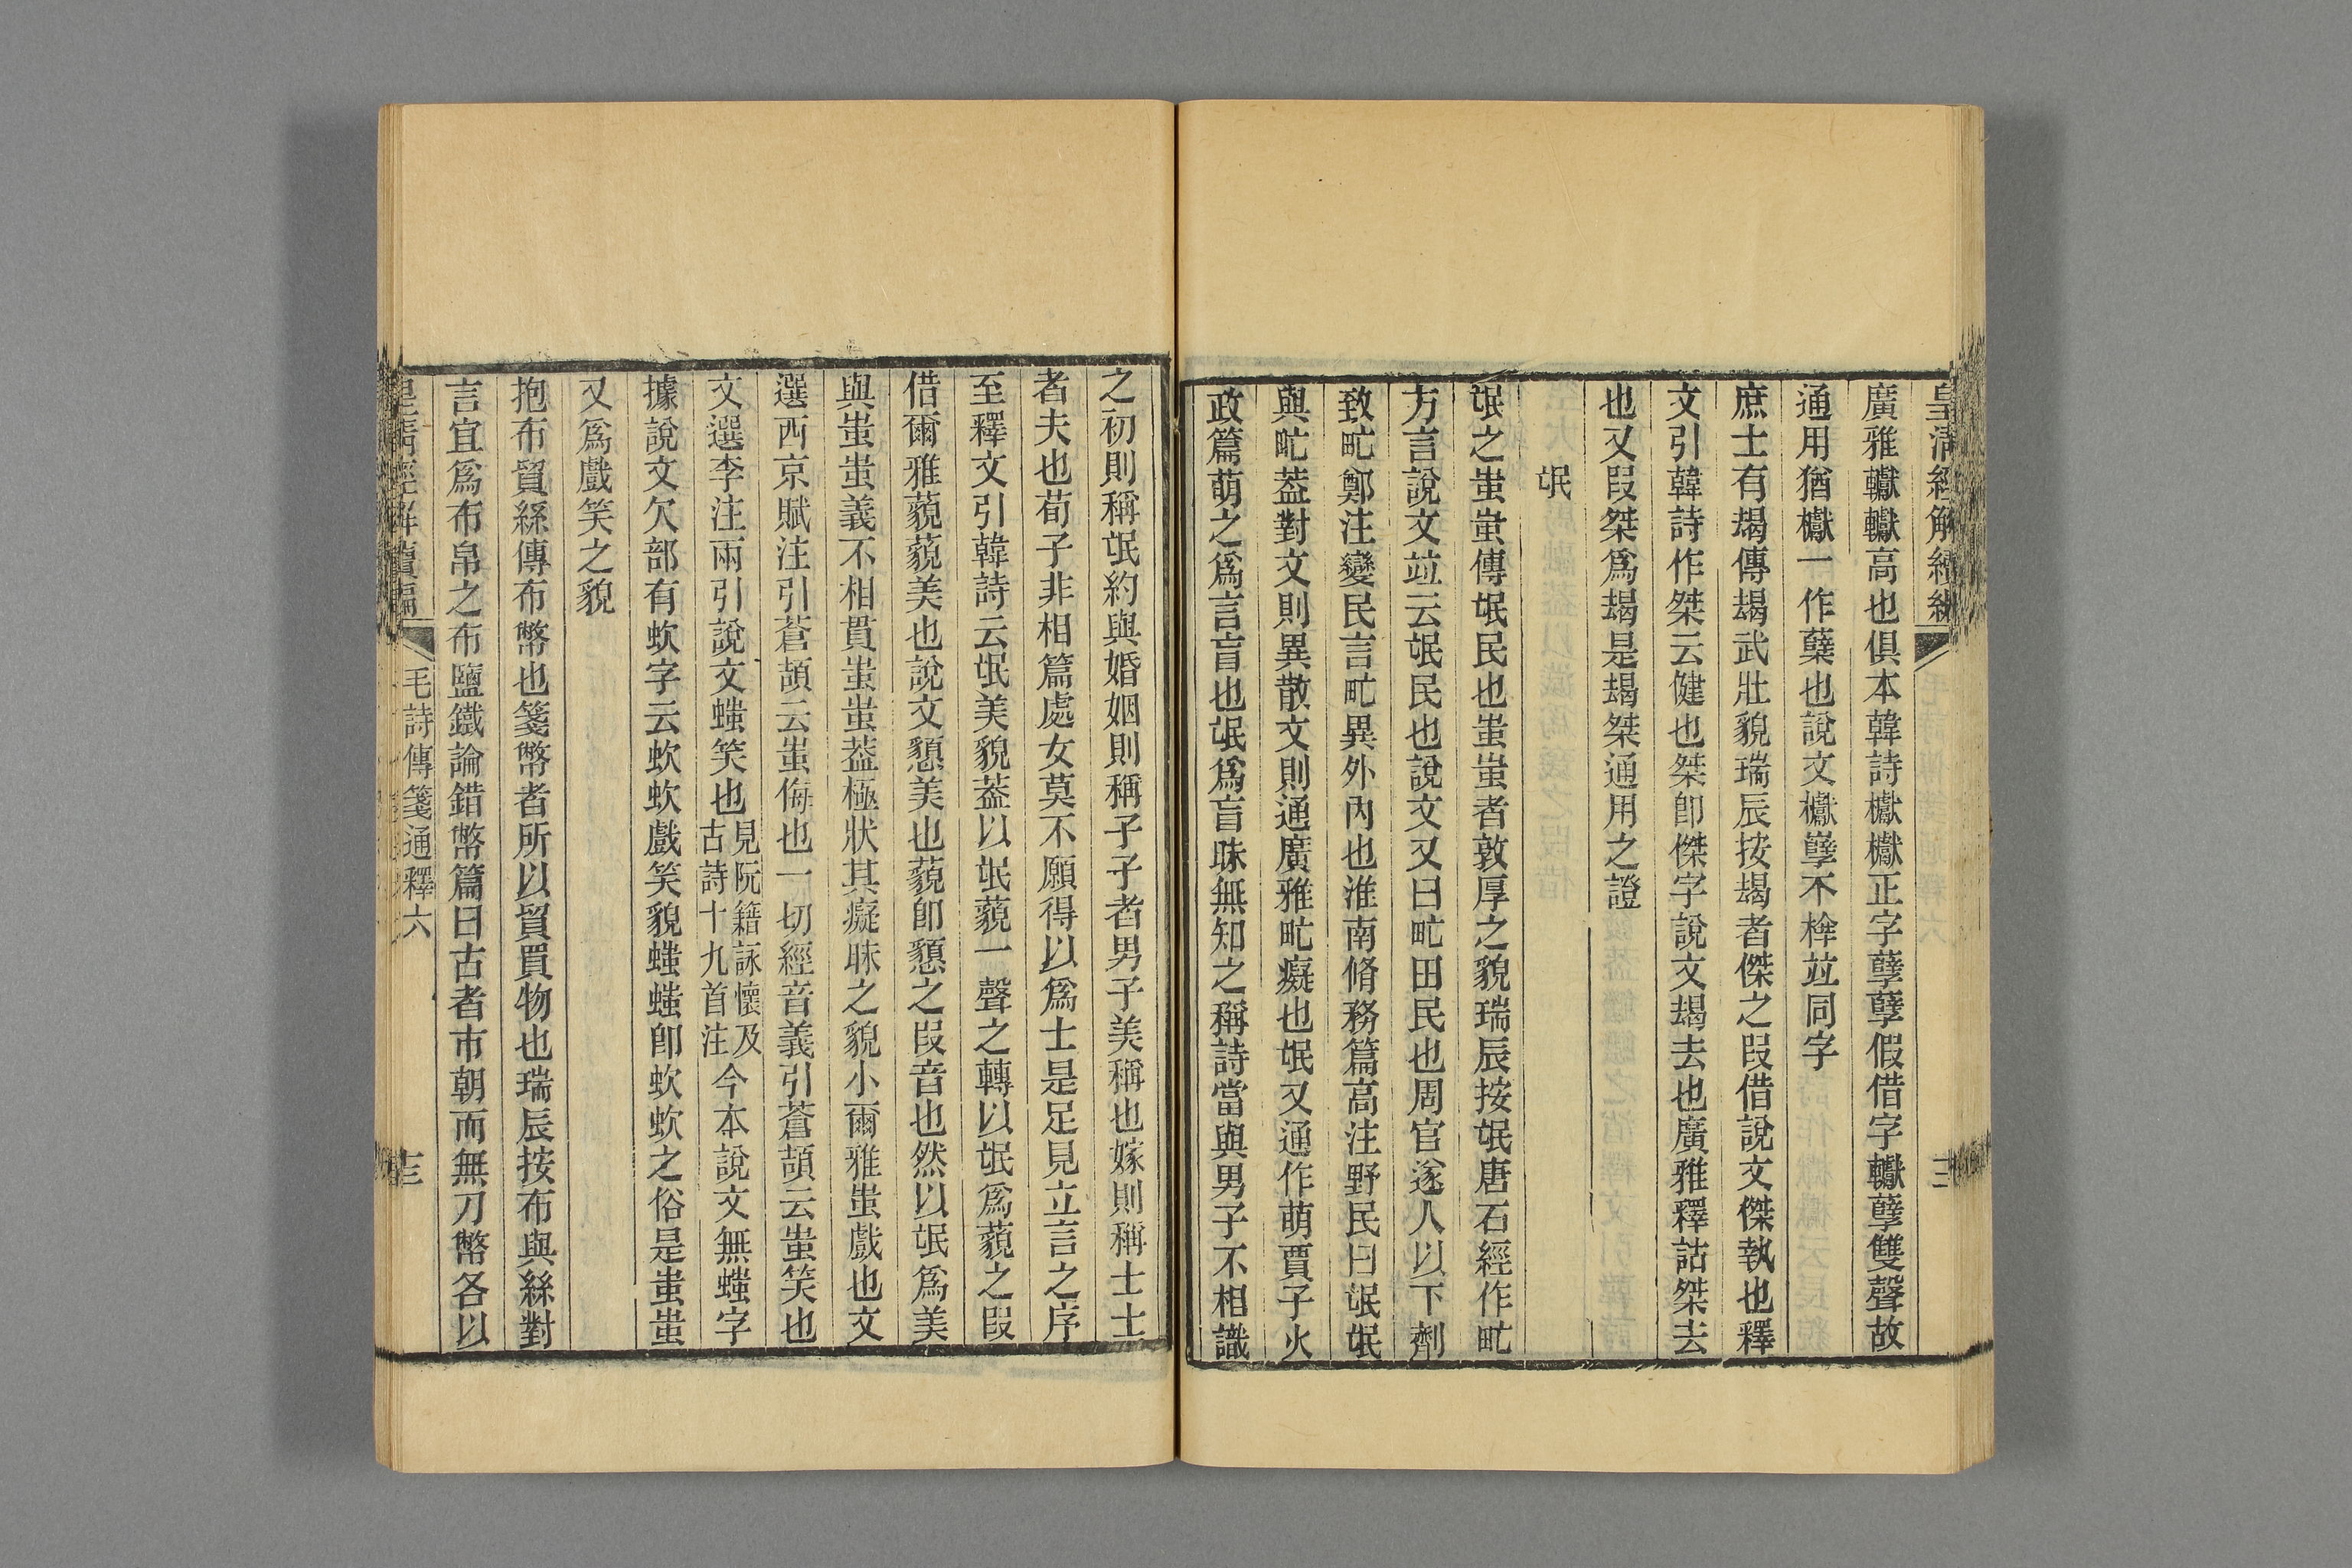 皇清經解續編
廣雅钀钀高也俱本韓詩巘巘正字孽孽假借字钀孽雙聲故
通用猶巘一作蘖也說文巘孽不椊竝同字
庶士有朅傳朅武壯貌瑞辰按朅者傑之叚借說文傑執也釋
文引韓詩作桀云健也桀卽傑字說文朅去也廣雅釋詁桀去
也又叚桀爲朅是朅桀通用之證
氓
氓之蚩蚩傳氓民也蚩蚩者敦厚之貌瑞辰按氓唐石經作甿
方言說文竝云氓民也說文又曰甿田民也周官遂人以下劑
致甿鄭注變民言甿異外內也淮南脩務篇高注野民曰氓氓
與甿葢對文則異散文則通廣雅甿癡也氓又通作萌賈子火
政篇萌之爲言盲也氓爲盲昧無知之稱詩當與男子不相識
之初則稱氓約與婚姻則稱子子者男子美稱也嫁則稱士士
者夫也荀子非相篇處女莫不願得以爲士是足見立言之序
至釋文引韓詩云氓美貌葢以氓藐一聲之轉以氓爲藐之叚
借爾雅藐藐美也說文懇美也藐卽懇之叚音也然以氓爲美
與蚩蚩義不相貫蚩蚩葢極狀其癡昧之貌小爾雅蚩戲也文
選西京賦注引蒼頡云蚩侮也一切經音義引蒼頡云蚩笑也
文選李注兩引說文蚩笑也見阮籍詠懷及古詩十九首注今本說文無蚩字
據說文欠部有㰞字云㰞㰞戲笑貌蚩蚩卽㰞㰞之俗是蚩蚩
又爲戲笑之貌
抱布貿絲傳布幣也箋幣者所以貿買物也瑞辰按布與絲對
言宜爲布帛之布鹽鐵論錯幣篇曰古者市朝而無刀幣各以
皇清經解續編 毛詩傳箋通釋六 十三